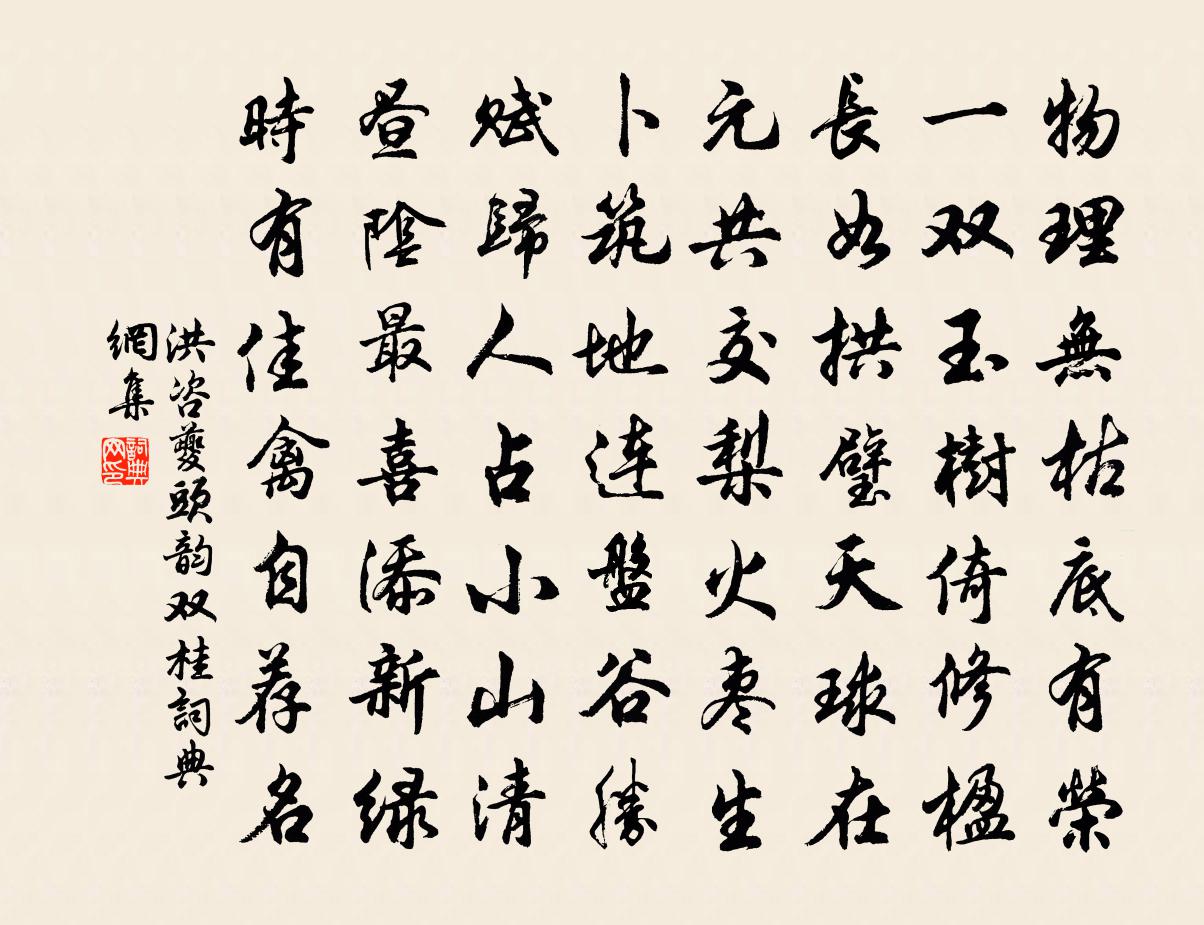 物理無枯底有榮
一双玉樹倚修楹
長如拱璧天球在
元共交梨火枣生
卜筑地连盤谷勝
赋歸人占小山清
昼陰最喜添新绿
時有佳禽自荐名
洪咨夔頭韵双桂詞典
網集
詞典